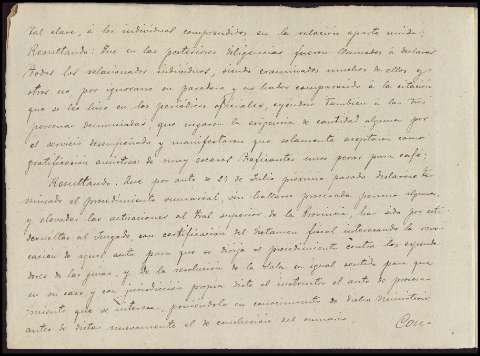 tal clase, á los individuos comprendidos en la relación aparte unida;
Resultando: Que en las posteriores diligencias fueron llamados á declarar
todos los relacionados individuos, siendo examinados muchos de ellos y
otros no, por ignorarse su paradero y no haber comparecido á la citación
que se les hizo en los periódicos oficiales, oyendose tambien á las tres
personas denunciadas, que negaron la exigencia de cantidad alguna por
el servicio desempeñado y manifestaron que solamente aceptaron como
gratificación de muy escasos traficantes unos pesos para café;
Resultando: Que por auto de 21 de Julio próximo pasado declarose ter-
minado el procedimiento sumarial, sin hallarse procesada persona alguna,
y elevadas las actuaciones al Tribal superior de la Provincia, han sido por este
devueltas al Juzgado con certificación del dictamen fiscal interesando la revo-
cación de aquel auto para que se dirija el procedimiento contra los expende-
dores de las guias, y de la resolución de la Sala en igual sentido para que
en su caso y con jurisdicción propia dicte el instructor el auto de procesa-
miento que se interesa, poniéndolo en conocimiento de dicho
antes de dictar nuevamente el de conclusión del sumario.
Con-